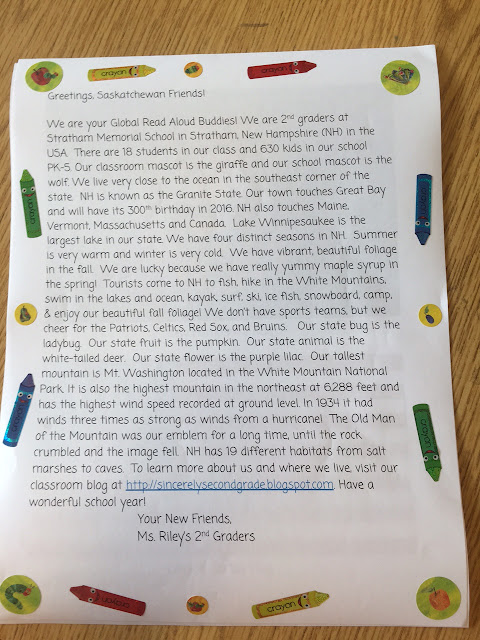 crayon
crayon
Greetings, Saskatchewan Friends!
We are your Global Read Aloud Buddies! We are 2nd graders at
Stratham Memorial School in Stratham, New Hampshire (NH) in the
USA. There are 18 students in our class and 630 kids in our school
PK-5. Our classroom mascot is the giraffe and our school mascot is the
wolf. We live very close to the ocean in the southeast corner of the
state. NH is known as the Granite State. Our town touches Great Bay
and will have its 300th birthday in 2016. NH also touches Maine,
Vermont, Massachusetts and Canada. Lake Winnipesaukee is the
largest lake in our state. We have four distinct seasons in NH. Summer
is very warm and winter is very cold. We have vibrant, beautiful foliage
in the fall. We are lucky because we have really yummy maple syrup in
the spring! Tourists come to NH to fish, hike in the White Mountains,
swim in the lakes and ocean, kayak, surf, ski, ice fish, snowboard, camp,
& enjoy our beautiful fall foliage! We don't have sports teams, but we
cheer for the Patriots, Celtics, Red Sox, and Bruins. Our state bug is the
ladybug. Our state fruit is the pumpkin. Our state animal is the
white-tailed deer. Our state flower is the purple lilac. Our tallest
mountain is Mt. Washington located in the White Mountain National
Park. It is also the highest mountain in the northeast at 6288 feet and
has the highest wind speed recorded at ground level. In 1934 it had
winds three times as strong as winds from a hurricane! The Old Man
of the Mountain was our emblem for a long time, until the rock
crumbled and the image fell. NH has 19 different habitats from salt
marshes to caves. To learn more about us and where we live, visit our
classroom blog at http://sincerelysecondgrade.blogspot.com. Have a
wonderful school year!
Your New Friends,
Ms. Riley's 2nd Graders
crayon
crayon
crayon
crayon
crayon
crayon